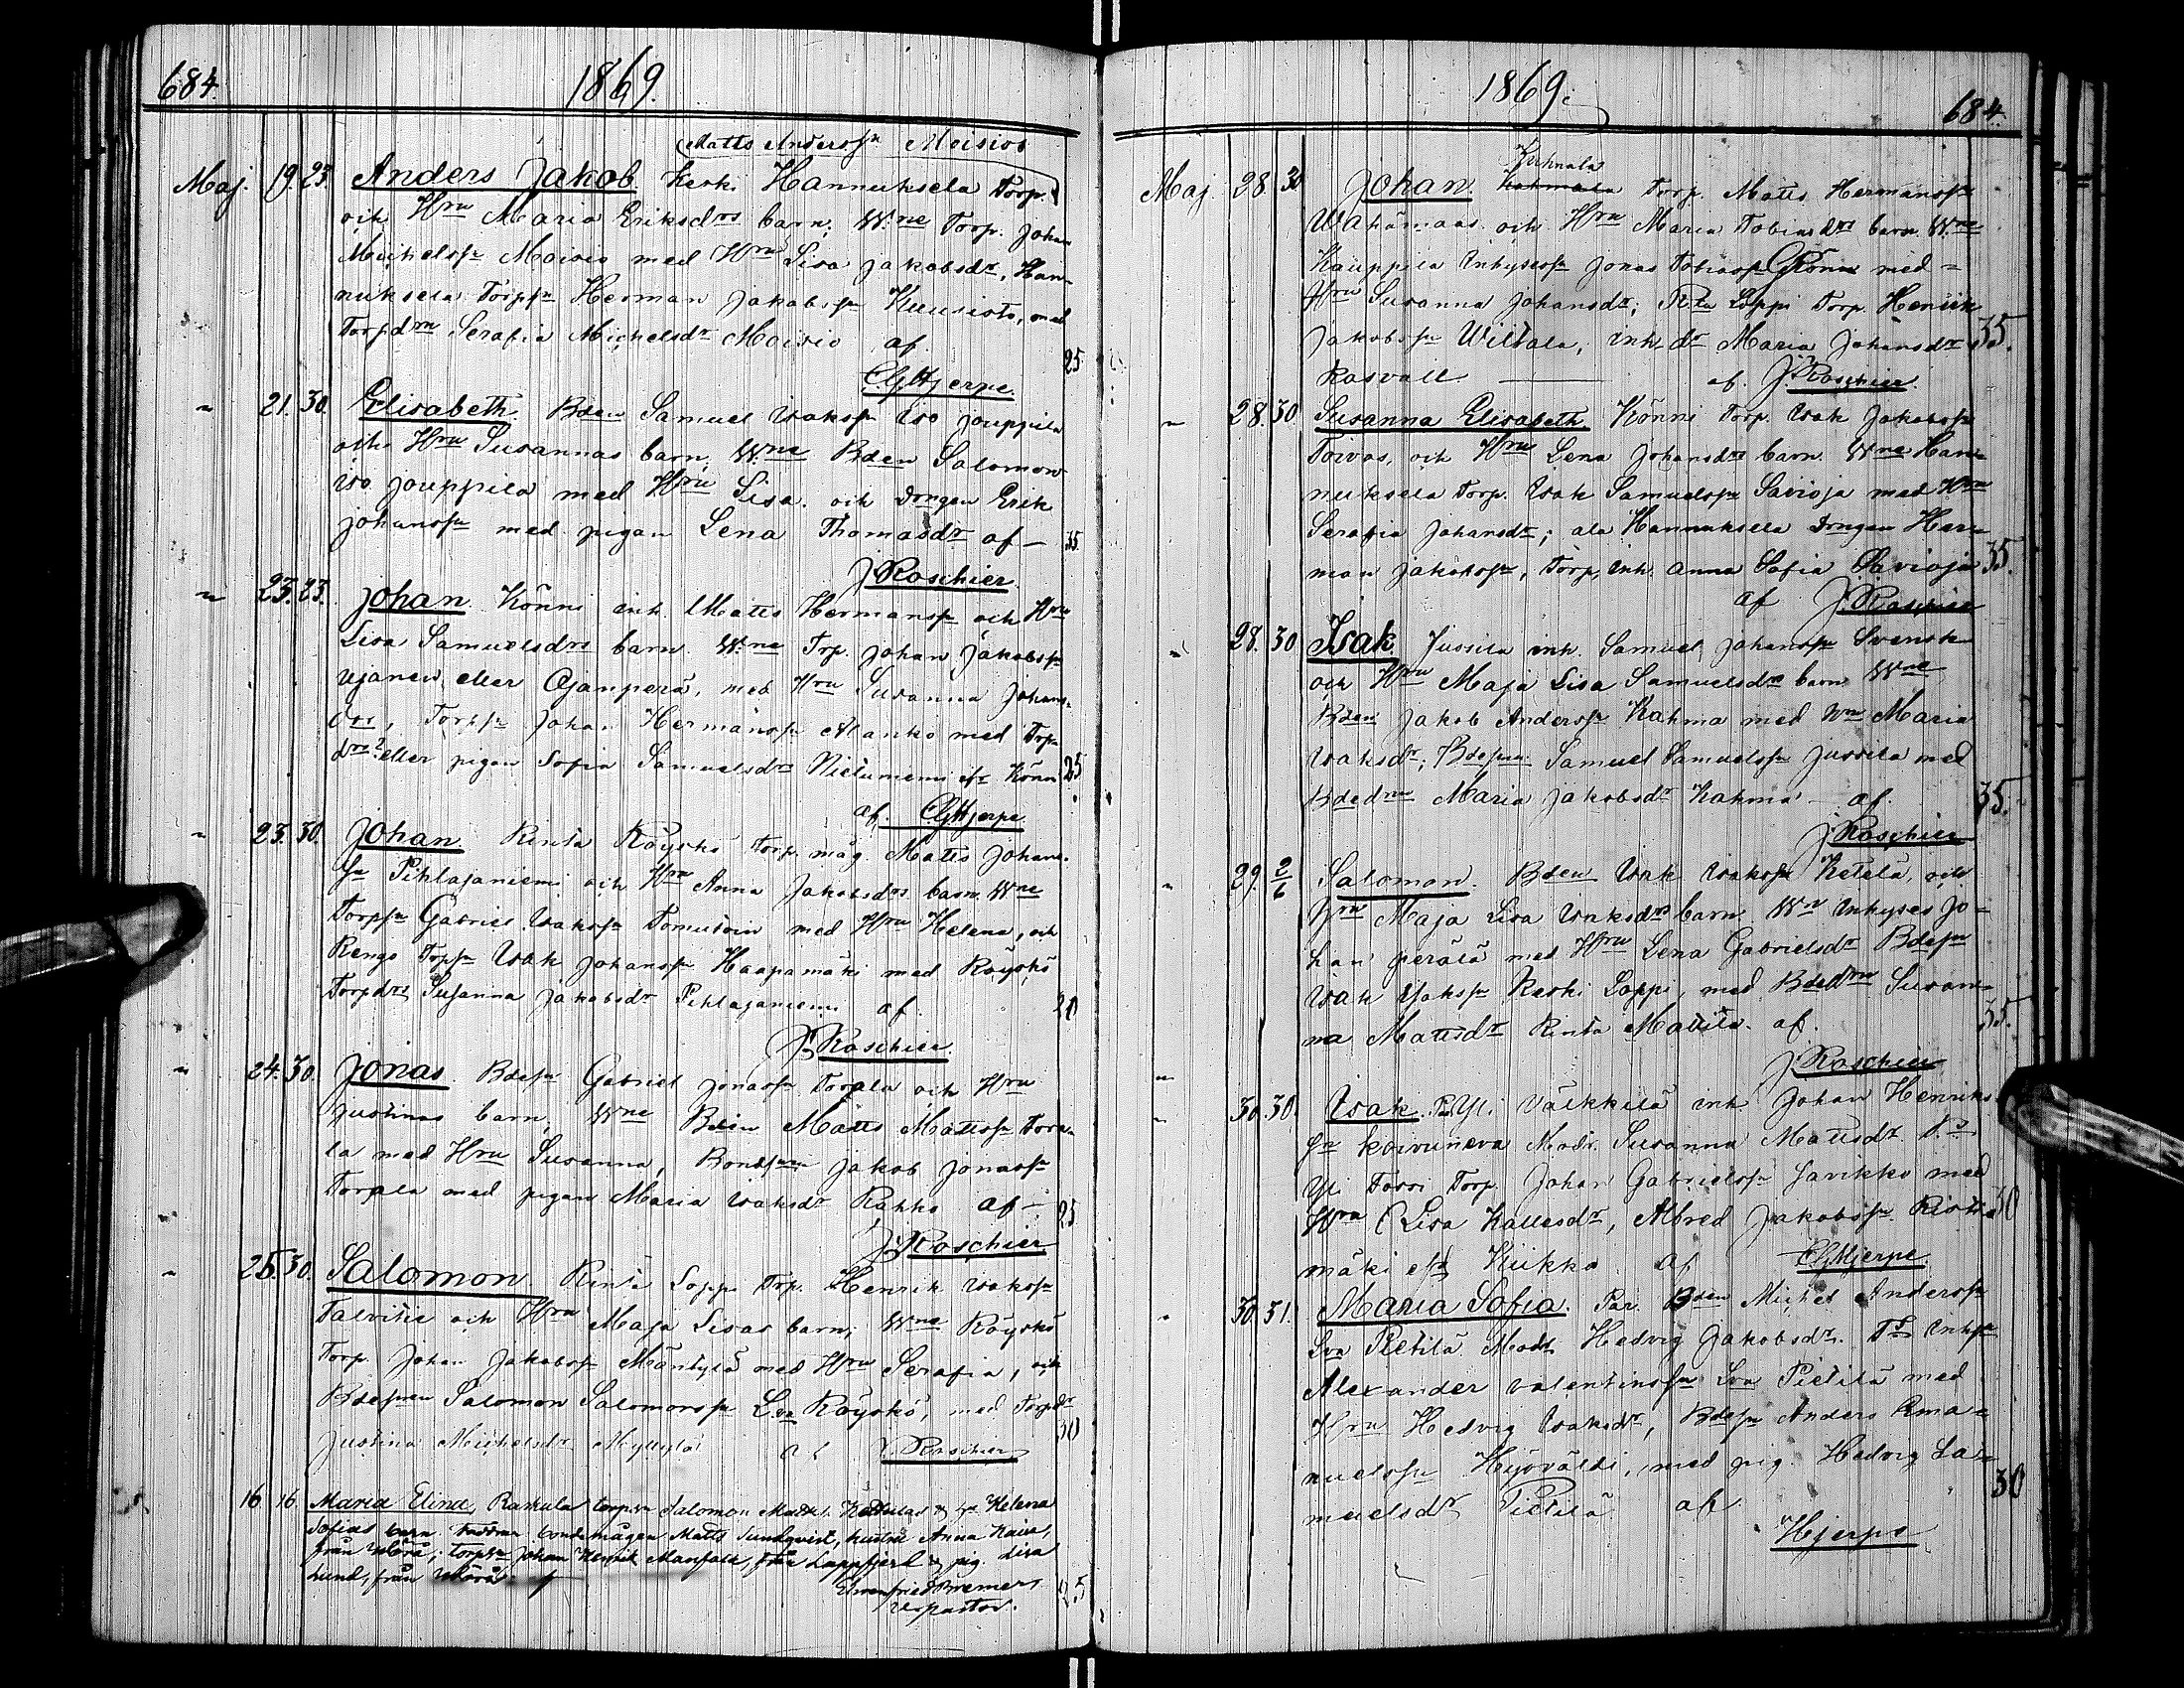 684. 1869.
Matts Anderssn Moisios
Maj. 19. 23. Anders Jakob Keski Hannuksela Torp.
och Hru Maria Eriksdrs barn; W:ne Torp. Johan
Michelssn Moisio med Hru Lisa Jakobsdr, Han-
nuksela Torpsn Herman Jakobssn Kuusisto, med
Torpdrn Serafia Michelsdr Moisio af
25
CGHjerpe.
" 21. 30. Elisabeth. Bden Samuel Isakssn Iso Jouppila
och Hru Susannas barn, W:ne Bden Salomon
Iso Jouppila med Hru Lisa. och Drngen Erik
Johanssn med pigan Lena Thomasdr af — 35.
J Roschier.
" 23. 23. Johan Könni inh. Matts Hermanssn och Hru
Lisa Samuelsdrs barn. W:ne Trp. Johan Jakobssn
Ujanen eller Ojanperä, med Hru Susanna Johans-
dr, Torpsn Johan Hermanssn Alanko med Trp-
drn? eller pigan Sofia Samuelsdr Nietuniemi efr Könni 25
af. CGHjerpe
" 23. 30. Johan Rinta Röyskö Torp. måg. Matts Johans-
sn Pihlajaniemi och Hru Anna Jakobsdrs barn. W:ne
Torpsn Gabriel Isakssn med Hru Helena, och
Rengo Torpsn Isak Johanssn Haapamäki med Röyskö
Torpdrn Susanna Jakobsdr Pihlajaniemi af.
J. Roschier.
" 24. 30. Jonas. Bdesn Gabriel Jonassn Torpala och Hru
Justinas barn, W:ne Bden Matts Mattssn Torpa-
la med Hru Susanna, Bondsnn Jakob Jonassn
Torpala med pigan Maria Isaksdr Rahko af — 25
J Roschier
" 25. 30. Salomon Rinta Loppi Trp. Henrik Isakssn
Talvitie och Hru Maja Lisas barn; W:ne Röyskö
Torp. Johan Jakobssn Mäntylä med Hru Serafia, och
Bdesnn Salomon Salomonssn Lva Röyskö, med Torpdr
Justina Michelsdr Myllylä af J. Roschier
30
16 16 Maria Elina, Raskula torparn Salomon & h. Helena
Sofias barn. Faddrar bondemågen Matts Sundqvist, hustru Anna Kaisa,
från Wörå; torpsn Johan Henrik, från Lappfjerd & pig. Lisa
Lund, från Wörå. af
Bremer
vcpastor. 25
1869. 684.
Kuhnala
Maj. 28. 30 Johan. Torp. Matts Hermanssn
Wähämaas och Hru Maria Tobiasdrs barn W:ne
Kauppila Inhysessn Jonas Tobiassn Grönn med
Hru Susanna Johansdr; Rta Loppi Torp. Henrik
Jakobssn Wiltala, inh dr Maria Johansdr 35.
Rosvall — af. J. Roschier.
" 28. 30 Susanna Elisabeth Könni Torp. Isak Jakobssn
Toivos, och Hru Lena Johansdrs barn. W:ne Han-
nuksela Torp. Isak Samuelssn Savioja med Hru
Serafia Johansdr; ala Hannuksela Drngen Her-
man Jakobssn, Torp, Inh. Anna Sofia Savioja 35.
af J. Roschier
" 28. 30 Isak. Jussila inh. Samuel Johanssn Svensk
och Hru Maja Lisa Samuelsdrs barn W:ne
Bden Jakob Anderssn Kahma med Hru Maria
Isaksdr; Bdesnn Samuel Samuelssn Jussila med
Bdedrn Maria Jakobsdr Kahma — af. 35.
J Roschier
" 29. 2/6 Salomon. Bden Isak Isakssn Ketelä, och
Hru Maja Lisa Isaksdrs barn. W:n Inhyses Jo-
han Perälä med Hru Lena Gabrielsdr Bdesn
Isak Isakssn Keski Loppi, med Bdedrn Susan-
na Mattsdr Rinta Mattila. af. 35.
J. Roschier
" 30. 30. Isak. P. Yli Välkkilä inh Johan Henriks-
sn Koivuneva Modr. Susanna Mattsdr
Yli Torp. Johan Gabrielssn Savikko med
Hru Lisa Kallesdr, Alfred Jakobssn Risti- 30
mäki efr Kiikko af CGHjerpe
" 30. 31. Maria Sofia. Par. Bden Michel Anderssn
Lva Pietilä Modr Hedvig Jakobsdr. Inhsn
Alexander Valentinssn Lva Pietilä med
Hru Hedvig Isaksdr, Bdesn Anders Ema-
nuelssn Hyövälti, med pig. Hedvig Sa-
muelsdr Pietilä af 30
Hjerpe